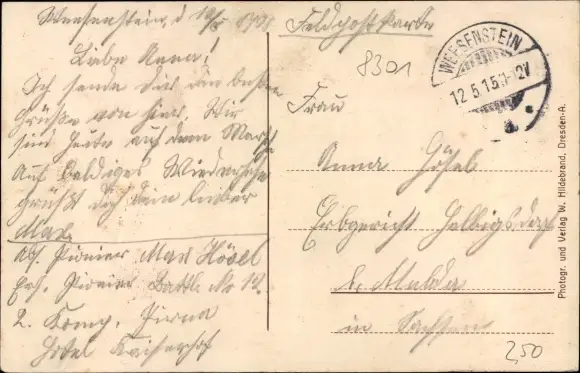 Weesenstein, d. 12/5. 1915.
Liebe Anna!
Ich sende dir den besten
Grüße von hier. Wir
sind heute auf dem Marsche
Auf baldiges Wiedersehen
grüßt dich dein lieber
Max.
Abs. Pionier Max Hösel
Ers. Pionier Battl. No 12.
2. Komp. Pirna
Hotel Kaiserhof
Feldpostkarte
8301
WEESENSTEIN
12.5.15. 11-12V
a.
Frau
Anna Hösel
Erbgericht Helbigsdorf
b. Mulda
in Sachsen
2,50
Photogr. und Verlag W. Hildebrand, Dresden-A.